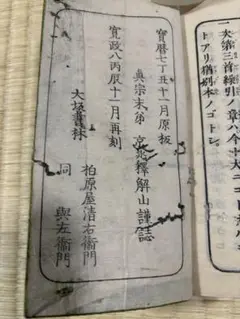 一次第三首繰引ノ章ハ今
トアリ猶刻本ノゴトシ
寶暦七丁丑十一月原板
真宗末弟 釋解山謹誌
寛政八丙辰十一月再刻
大坂書林
柏原屋清右衞門
同 與左衞門